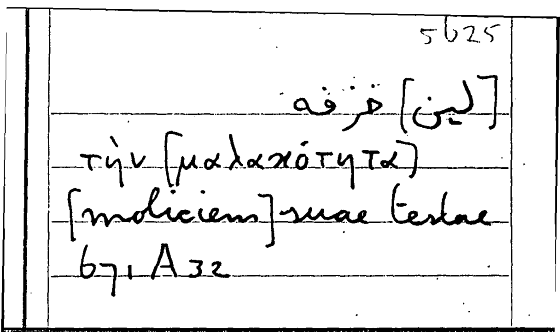 5625
[لين] خزفه
τὴν [μαλακότητα]
[moliciem] suae testae
671 A 32